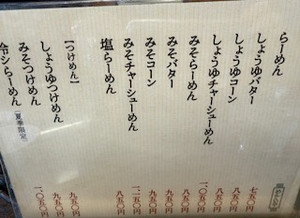 らーめん 七五〇円
しょうゆバター 八五〇円
しょうゆコーン 八五〇円
しょうゆチャーシューめん 一、〇五〇円
みそらーめん 八五〇円
みそバター 九五〇円
みそコーン 九五〇円
みそチャーシューめん 一、一五〇円
塩らーめん 八五〇円
【つけめん】
しょうゆつけめん 九五〇円
みそつけめん 九五〇円
冷しらーめん [夏季限定] 一、〇五〇円